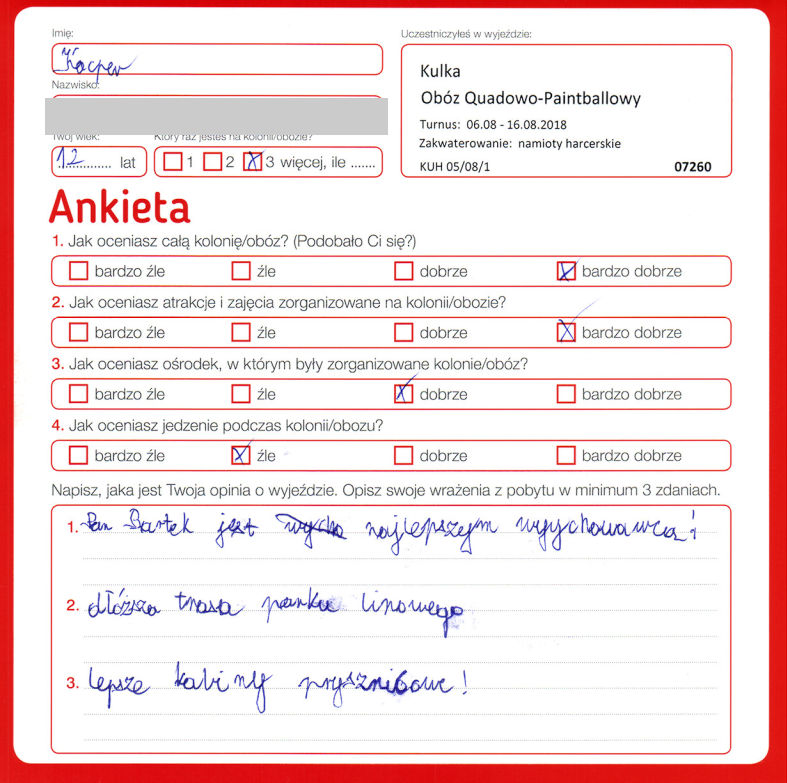 Imię:
Kacper
Nazwisko:
Uczestniczyłeś w wyjeździe:
Kulka
Obóz Quadowo-Paintballowy
Turnus: 06.08 - 16.08.2018
Zakwaterowanie: namioty harcerskie
KUH 05/08/1 07260
Twój wiek: Który raz jesteś na kolonii/obozie?
12 lat 1 2 X 3 więcej, ile .......
Ankieta
1. Jak oceniasz całą kolonię/obóz? (Podobało Ci się?)
bardzo źle źle dobrze X bardzo dobrze
2. Jak oceniasz atrakcje i zajęcia zorganizowane na kolonii/obozie?
bardzo źle źle dobrze X bardzo dobrze
3. Jak oceniasz ośrodek, w którym były zorganizowane kolonie/obóz?
bardzo źle źle X dobrze bardzo dobrze
4. Jak oceniasz jedzenie podczas kolonii/obozu?
bardzo źle X źle dobrze bardzo dobrze
Napisz, jaka jest Twoja opinia o wyjeździe. Opisz swoje wrażenia z pobytu w minimum 3 zdaniach.
1. Pan Bartek jest najlepszym wyychowawcą!
2. dłóższa trasa parku linowego
3. lepsze kabiny prysznibowe!